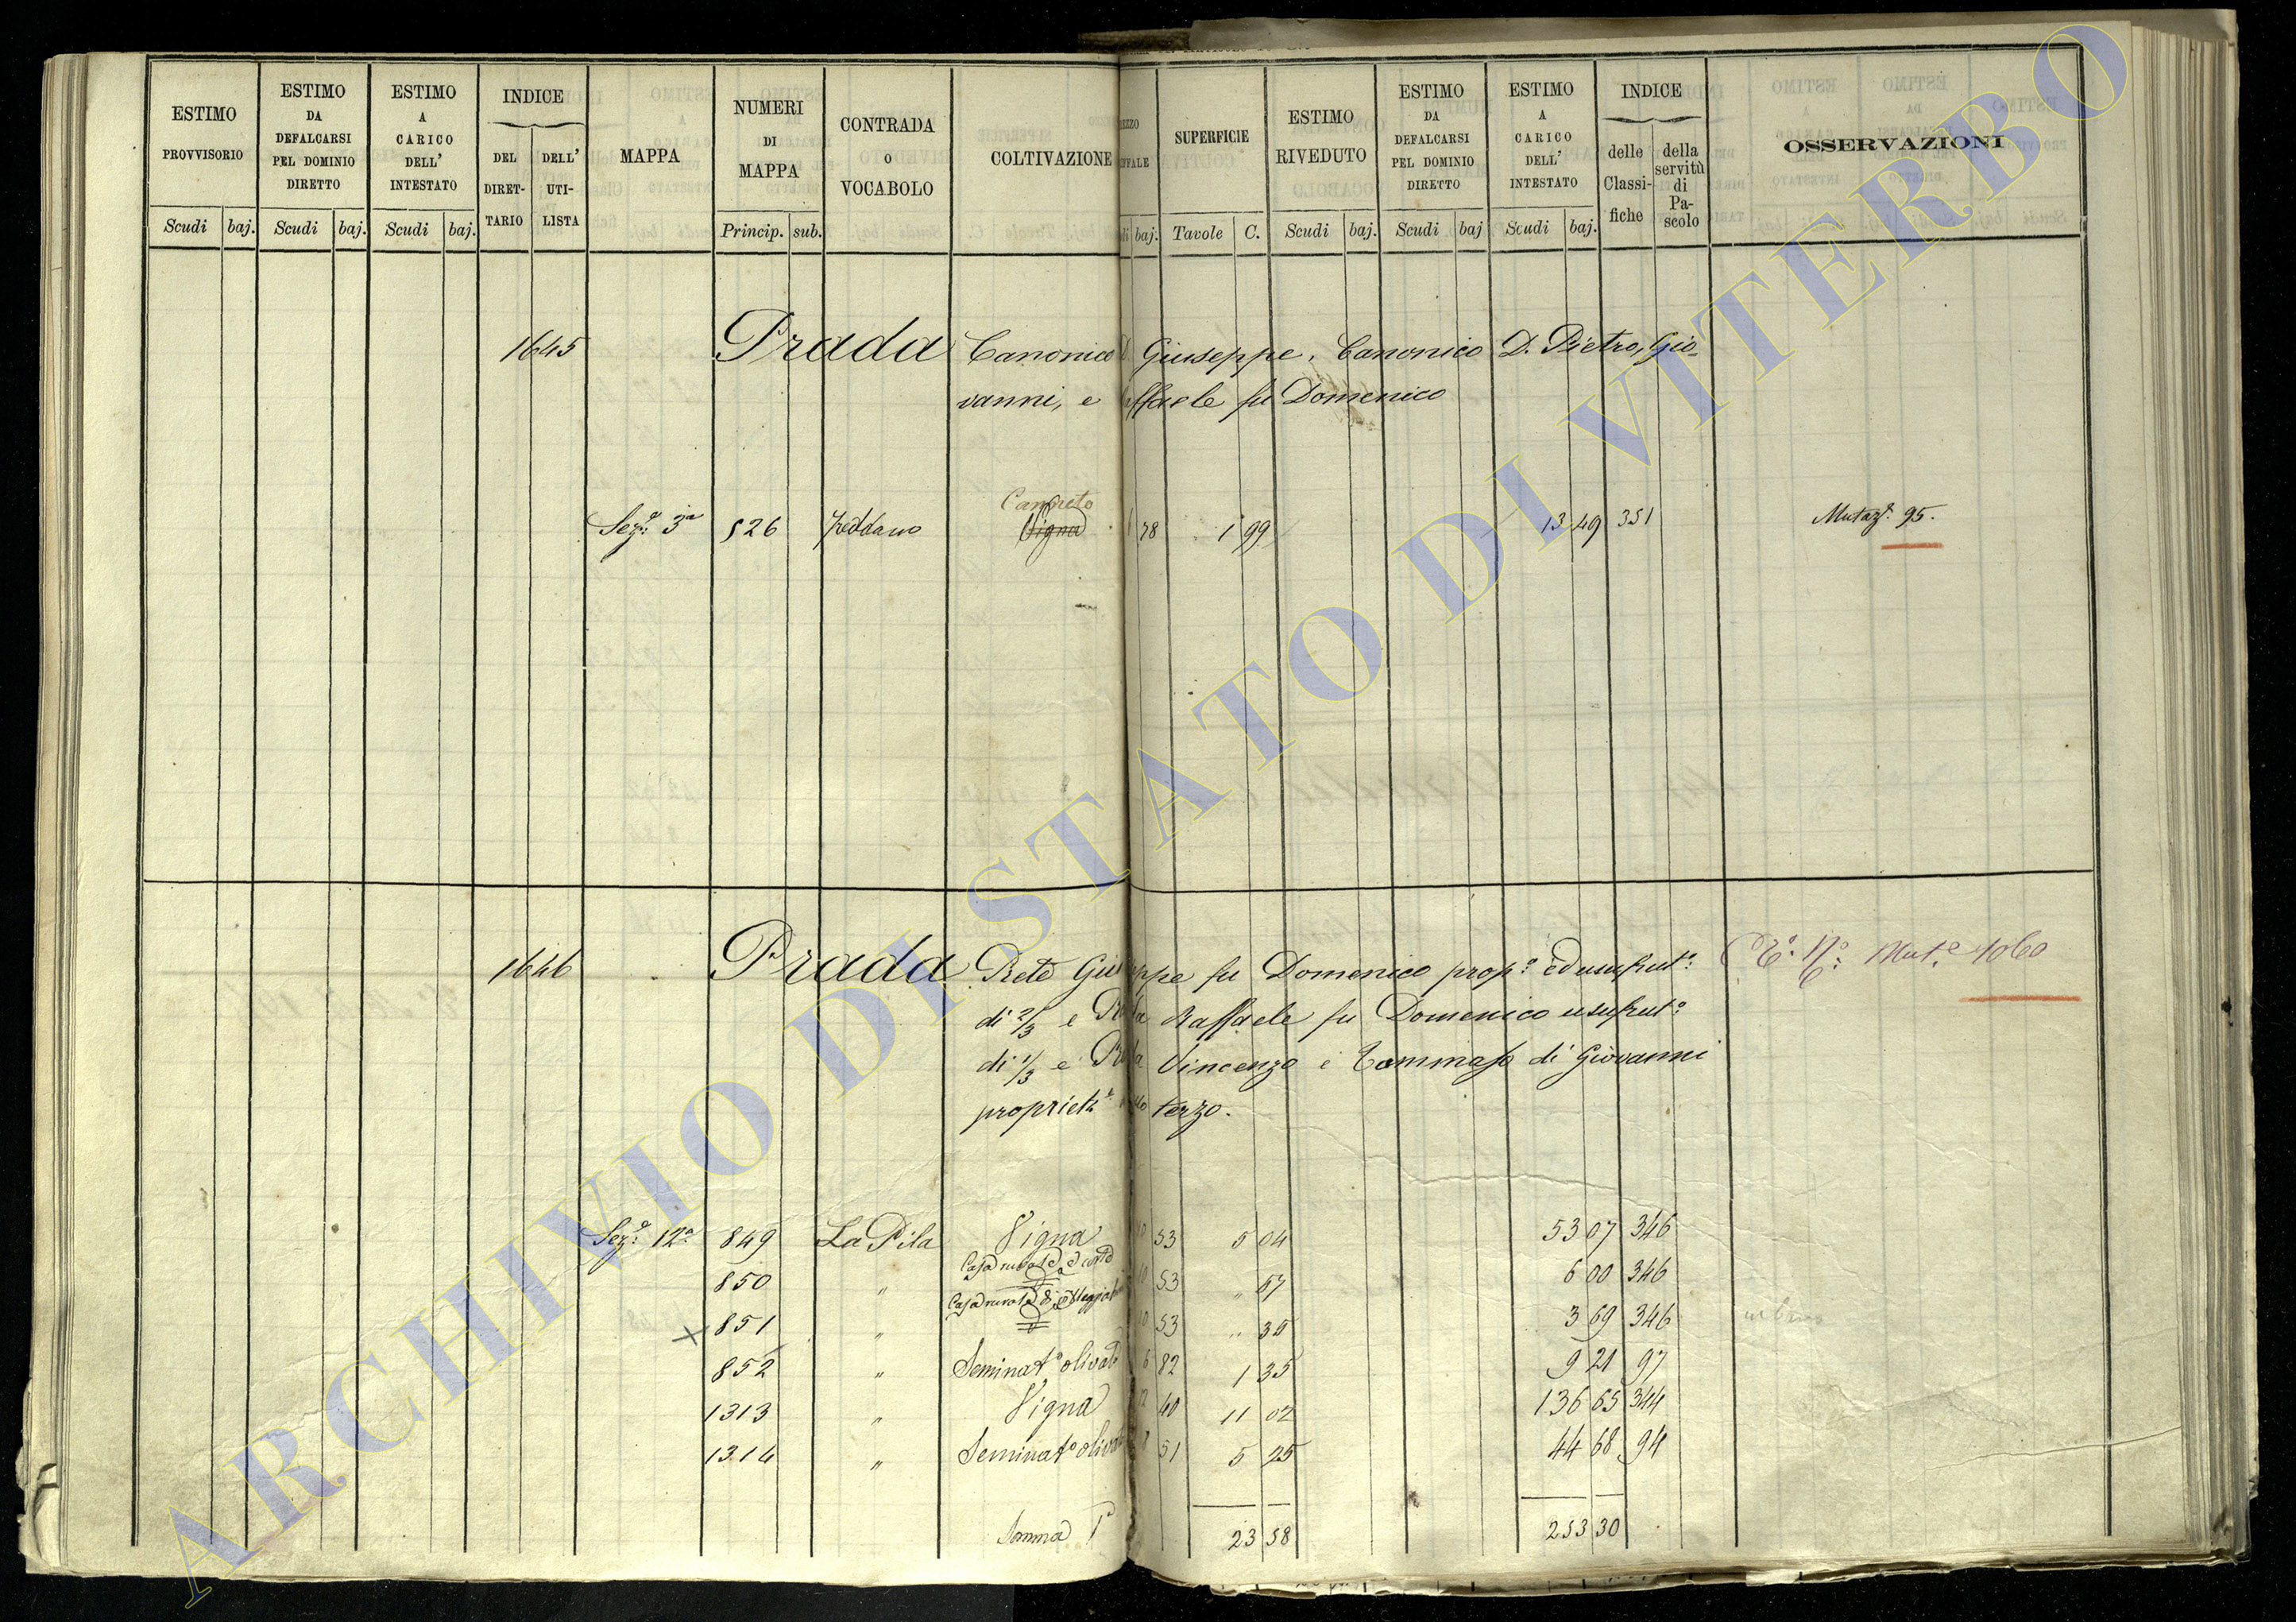 ESTIMO PROVVISORIO Scudi baj.
ESTIMO DA DEFALCARSI PEL DOMINIO DIRETTO Scudi baj.
ESTIMO A CARICO DELL' INTESTATO Scudi baj.
INDICE DEL DIRET-TARIO DELL' UTI-LISTA
MAPPA
NUMERI DI MAPPA Princip. sub.
CONTRADA O VOCABOLO
COLTIVAZIONE
baj.
SUPERFICIE Tavole C.
ESTIMO RIVEDUTO Scudi baj.
ESTIMO DA DEFALCARSI PEL DOMINIO DIRETTO Scudi baj
ESTIMO A CARICO DELL' INTESTATO Scudi baj.
INDICE delle Classi-fiche della servitù di Pa-scolo
OSSERVAZIONI
1645 Prada Canonico D. Giuseppe, Canonico D. Pietro, Gio-
vanni, e Raffaele fu Domenico
Canneto
Sez.e 3a 526 Vigna 78 1 99 13 49 351 Mutaz.e 95.
1646 Prada Prete Giuseppe fu Domenico prop.o ed usufrut.o
Mut.e 1060
di 2/3 e Prada Raffaele fu Domenico usufrut.o
di 1/3 e Prada Vincenzo e Tommaso di Giovanni
terzo.
Sez.e 12a 849 La Pila Vigna 10 53 5 04 53 07 346
850 " Casa rurale e corte 10 53 " 57 6 00 346
851 " Casa rurale di 10 53 " 35 3 69 346
852 " Seminat.o olivato 6 82 1 35 9 21 97
1313 " Vigna 12 40 11 02 136 65 344
1314 " Seminat.o olivato 8 51 5 25 44 68 94
Somma 23 58 253 30
ARCHIVIO DI STATO DI VITERBO